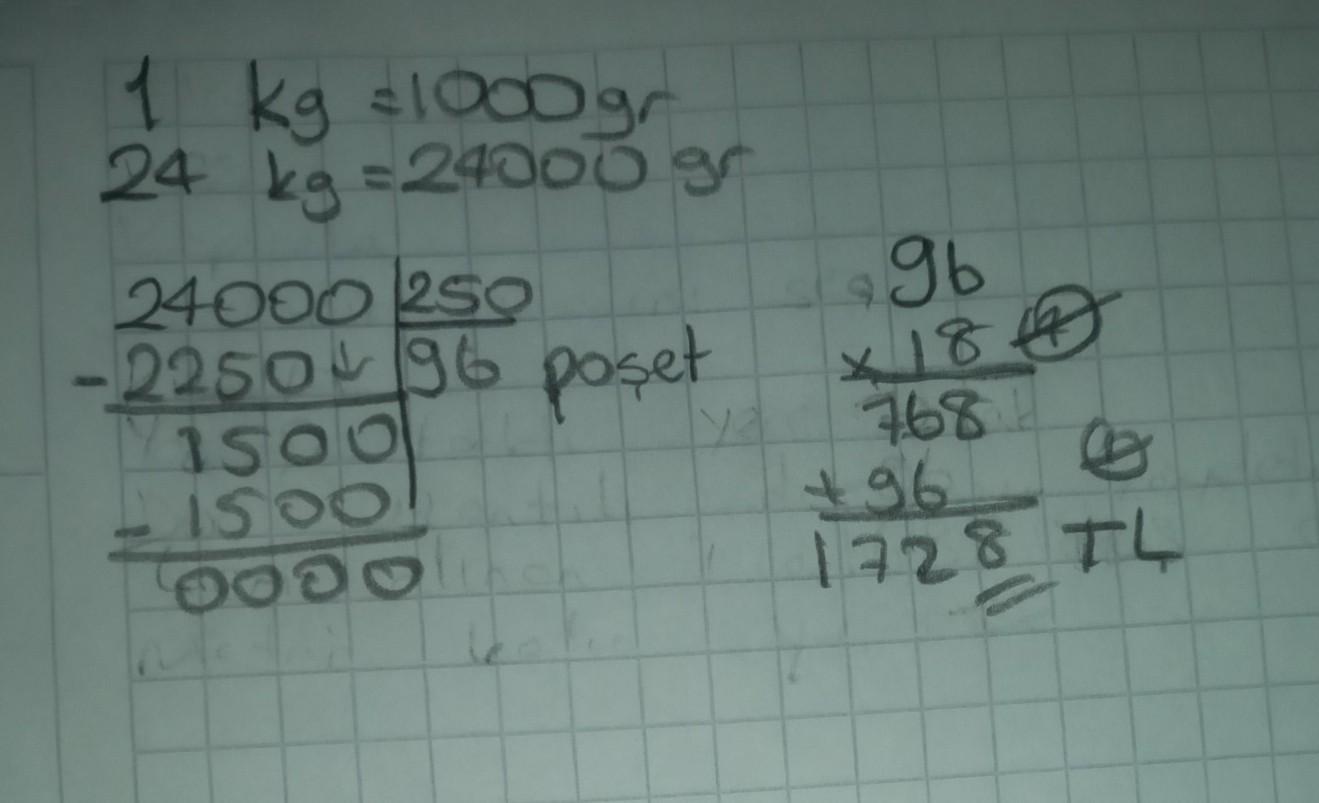 1 kg = 1000 gr
24 kg = 24000 gr
24000 | 250
- 2250↓ | 96 poşet
1500
- 1500
0000
96
x 18
768
+ 96
1728 TL